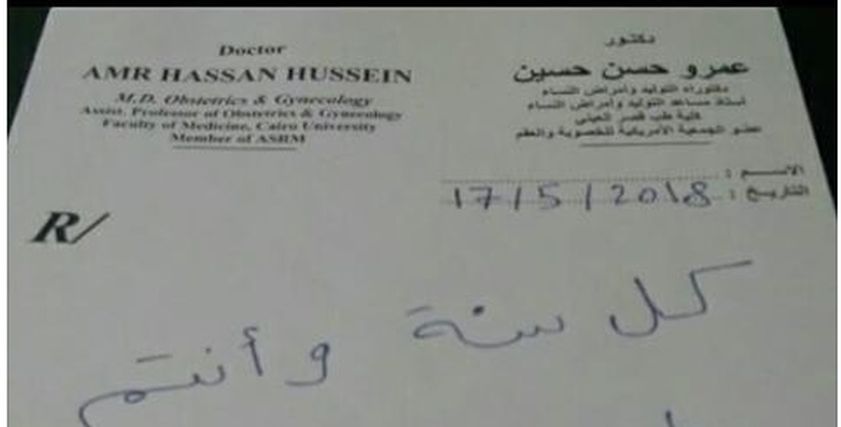 Doctor
AMR HASSAN HUSSEIN
M.D. Obstetrics & Gynecology
Assist. Professor of Obstetrics & Gynecology
Faculty of Medicine, Cairo University
Member of ASRM
دكتور
عمرو حسن حسين
دكتوراه التوليد وأمراض النساء
أستاذ مساعد التوليد وأمراض النساء
كلية طب قصر العينى
عضو الجمعية الأمريكية للخصوبة والعقم
الاسم :
التاريخ : 17/5/2018
R/
كل سنة وأنتم